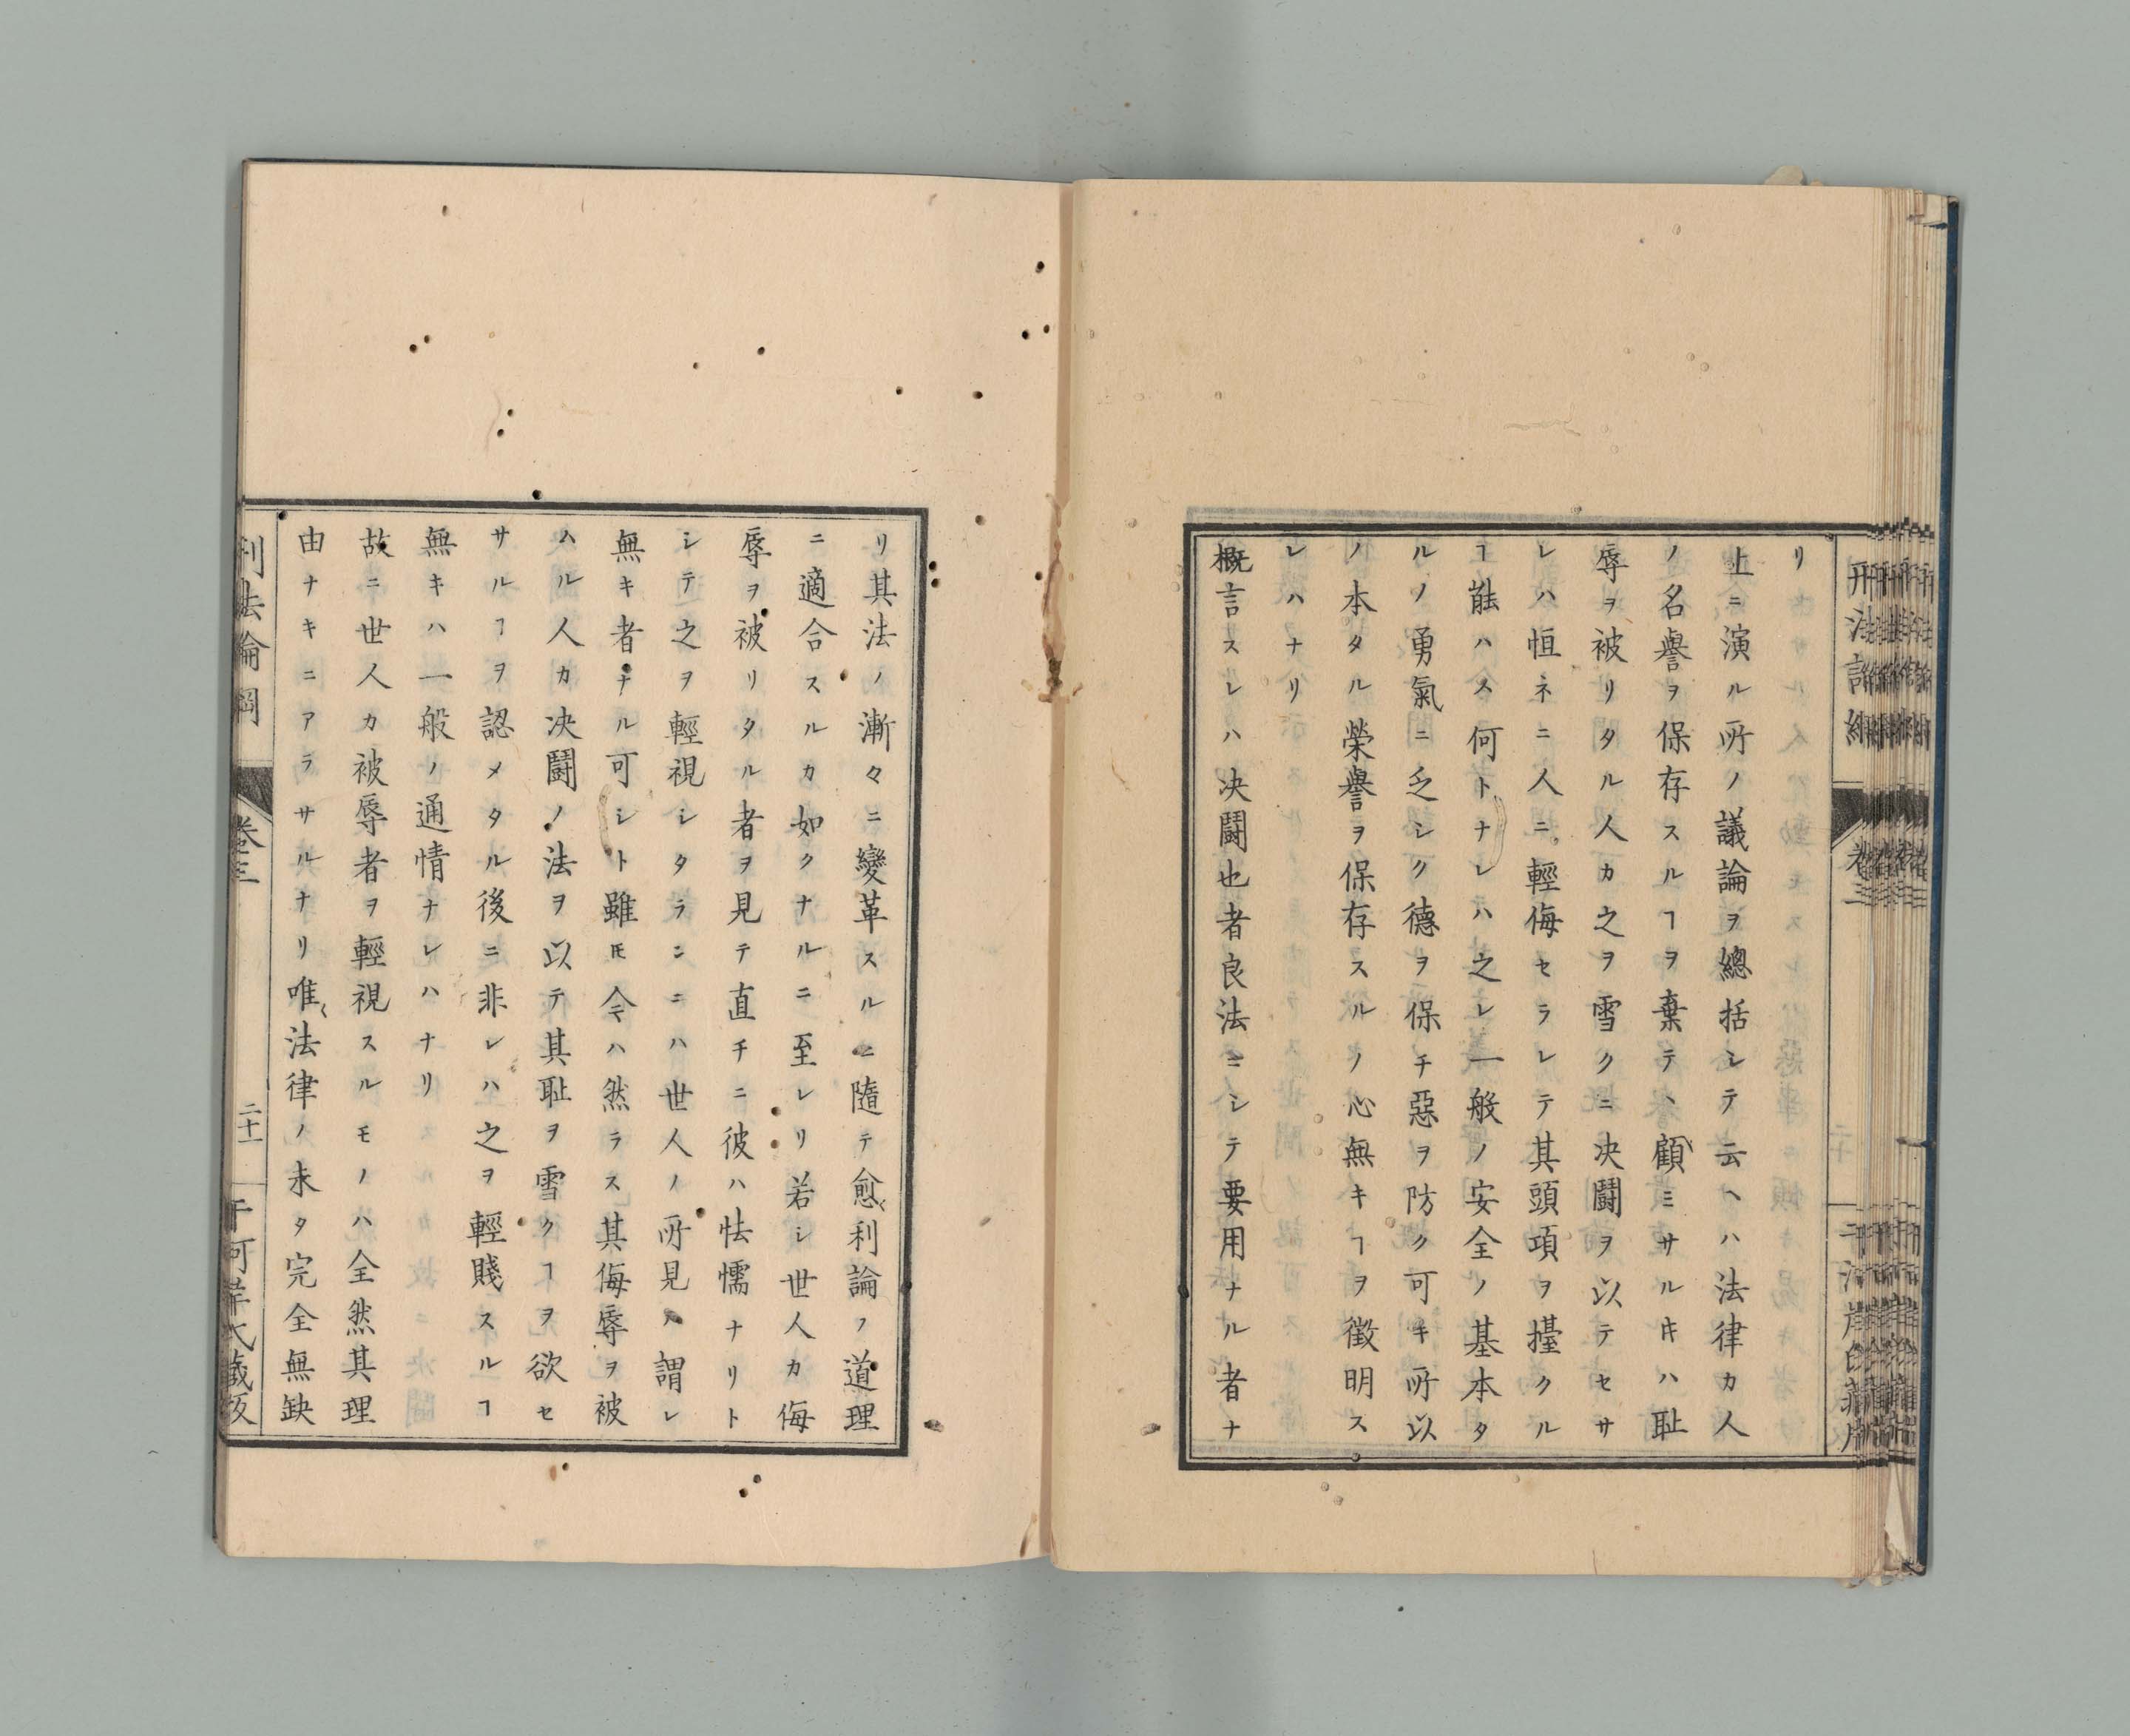 リ
上ニ演ル所ノ議論ヲ總括シテ云ヘハ法律カ人
ノ名譽ヲ保存スルヿヲ棄テヽ顧ミサルキハ耻
辱ヲ被リタル人カ之ヲ雪クニ决鬪ヲ以テセサ
レハ恒ネニ人ニ輕侮セラレテ其頭項ヲ擡クル
ヿ能ハス何トナレハ之レ一般ノ安全ノ基本タ
ルノ勇氣ニ乏シク德ヲ保チ惡ヲ防ク可キ所以
ノ本タル榮譽ヲ保存スルノ心無キヿヲ徴明ス
レハナリ
概言スレハ决鬪也者良法ニシテ要用ナル者ナ
リ其法ノ漸々ニ變革スルニ隨テ愈利論ノ道理
ニ適合スルカ如クナルニ至レリ若シ世人カ侮
辱ヲ被リタル者ヲ見テ直チニ彼ハ怯懦ナリト
シテ之ヲ輕視シタランニハ世人ノ所見ハ謂レ
無キ者ナル可シト雖𪜈今ハ然ラス其侮辱ヲ被
ハル人カ决鬪ノ法ヲ以テ其耻ヲ雪クヿヲ欲セ
サルヿヲ認メタル後ニ非レハ之ヲ輕賤スルヿ
無キハ一般ノ通情ナレハナリ
故ニ世人カ被辱者ヲ輕視スルモノハ全然其理
由ナキニアラサルナリ唯法律ノ未タ完全無缺
刑法論綱
卷三
二十一
干河岸氏藏版